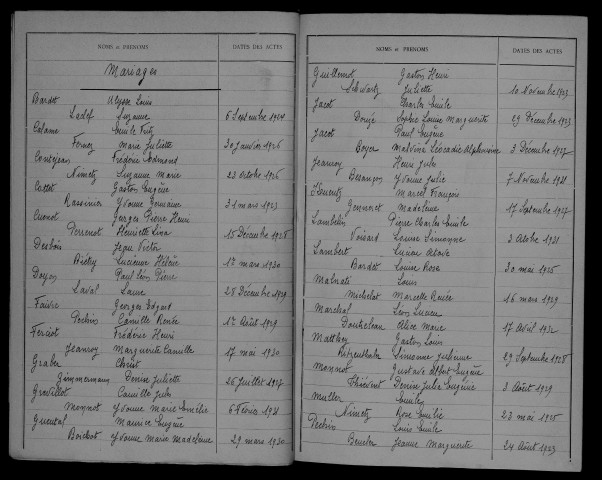 NOMS et PRENOMS DATES DES ACTES
Mariages
Bardet Ulysse Louis
Ladef Suzanne 6 Septembre 1924
Calame Emile Fritz
Ferney Marie Juliette 30 Janvier 1926
Conzejean Frédéric Edmond
Nimetz Suzanne Marie 23 octobre 1926
Cottet Gaston Eugène
Rassinier Yvonne Germaine 31 mars 1923
Cuenot Georges Pierre Henri
Perrenot Henriette Lina 15 Décembre 1928
Desbois Jean Victor
Bichy Lucienne Hélène 1er mars 1930
Doyon Paul Léon Pierre
Laval Laure 28 Décembre 1929
Faivre Georges Edgard
Pechin Camille Renée 1er Août 1929
Ferciot Frédéric Henri
Jeanroy Marguerite Camille 17 mai 1930
Graber Christ
Zimmermann Denise Juliette 26 Juillet 1927
Grevillot Camille Jules
Monnot Yvonne Marie Emélie 6 Février 1931
Gueutal Maurice Eugène
Boichot Yvonne Marie Madeleine 29 mars 1930
NOMS et PRENOMS DATES DES ACTES
Guillemot Gaston Henri
Schwartz Juliette 10 Novembre 1923
Jacot Charles Emile
Donzé Sophie Louise Marguerite 29 Décembre 1923
Jacot Paul Eugène
Boyer Malvina Léocadie Alphonsine 3 Décembre 1927
Jeanroy Henri Jules
Besançon Yvonne Julie 7 Novembre 1931
Marcel François
Jeannot Madeleine 17 Septembre 1927
Lambelin Pierre Charles Emile
Voisard Louise Simonne 3 Octobre 1931
Lambert Lucien
Bardet Louise Rose 30 mai 1925
Malnati Louis
Michelat Marcelle Renée 16 mars 1929
Marchal Léon Lucien
Alice Marie 17 Avril 1932
Matthey Gaston Louis
Simonne Julienne 29 Septembre 1928
Monnot Gustave Albert Eugène
Thiévent Denise Julia Eugénie 3 Août 1929
Muller Emile
Nimetz Rose Emilie 23 mai 1925
Pechin Louis Emile
Beucler Jeanne Marguerite 24 Août 1923